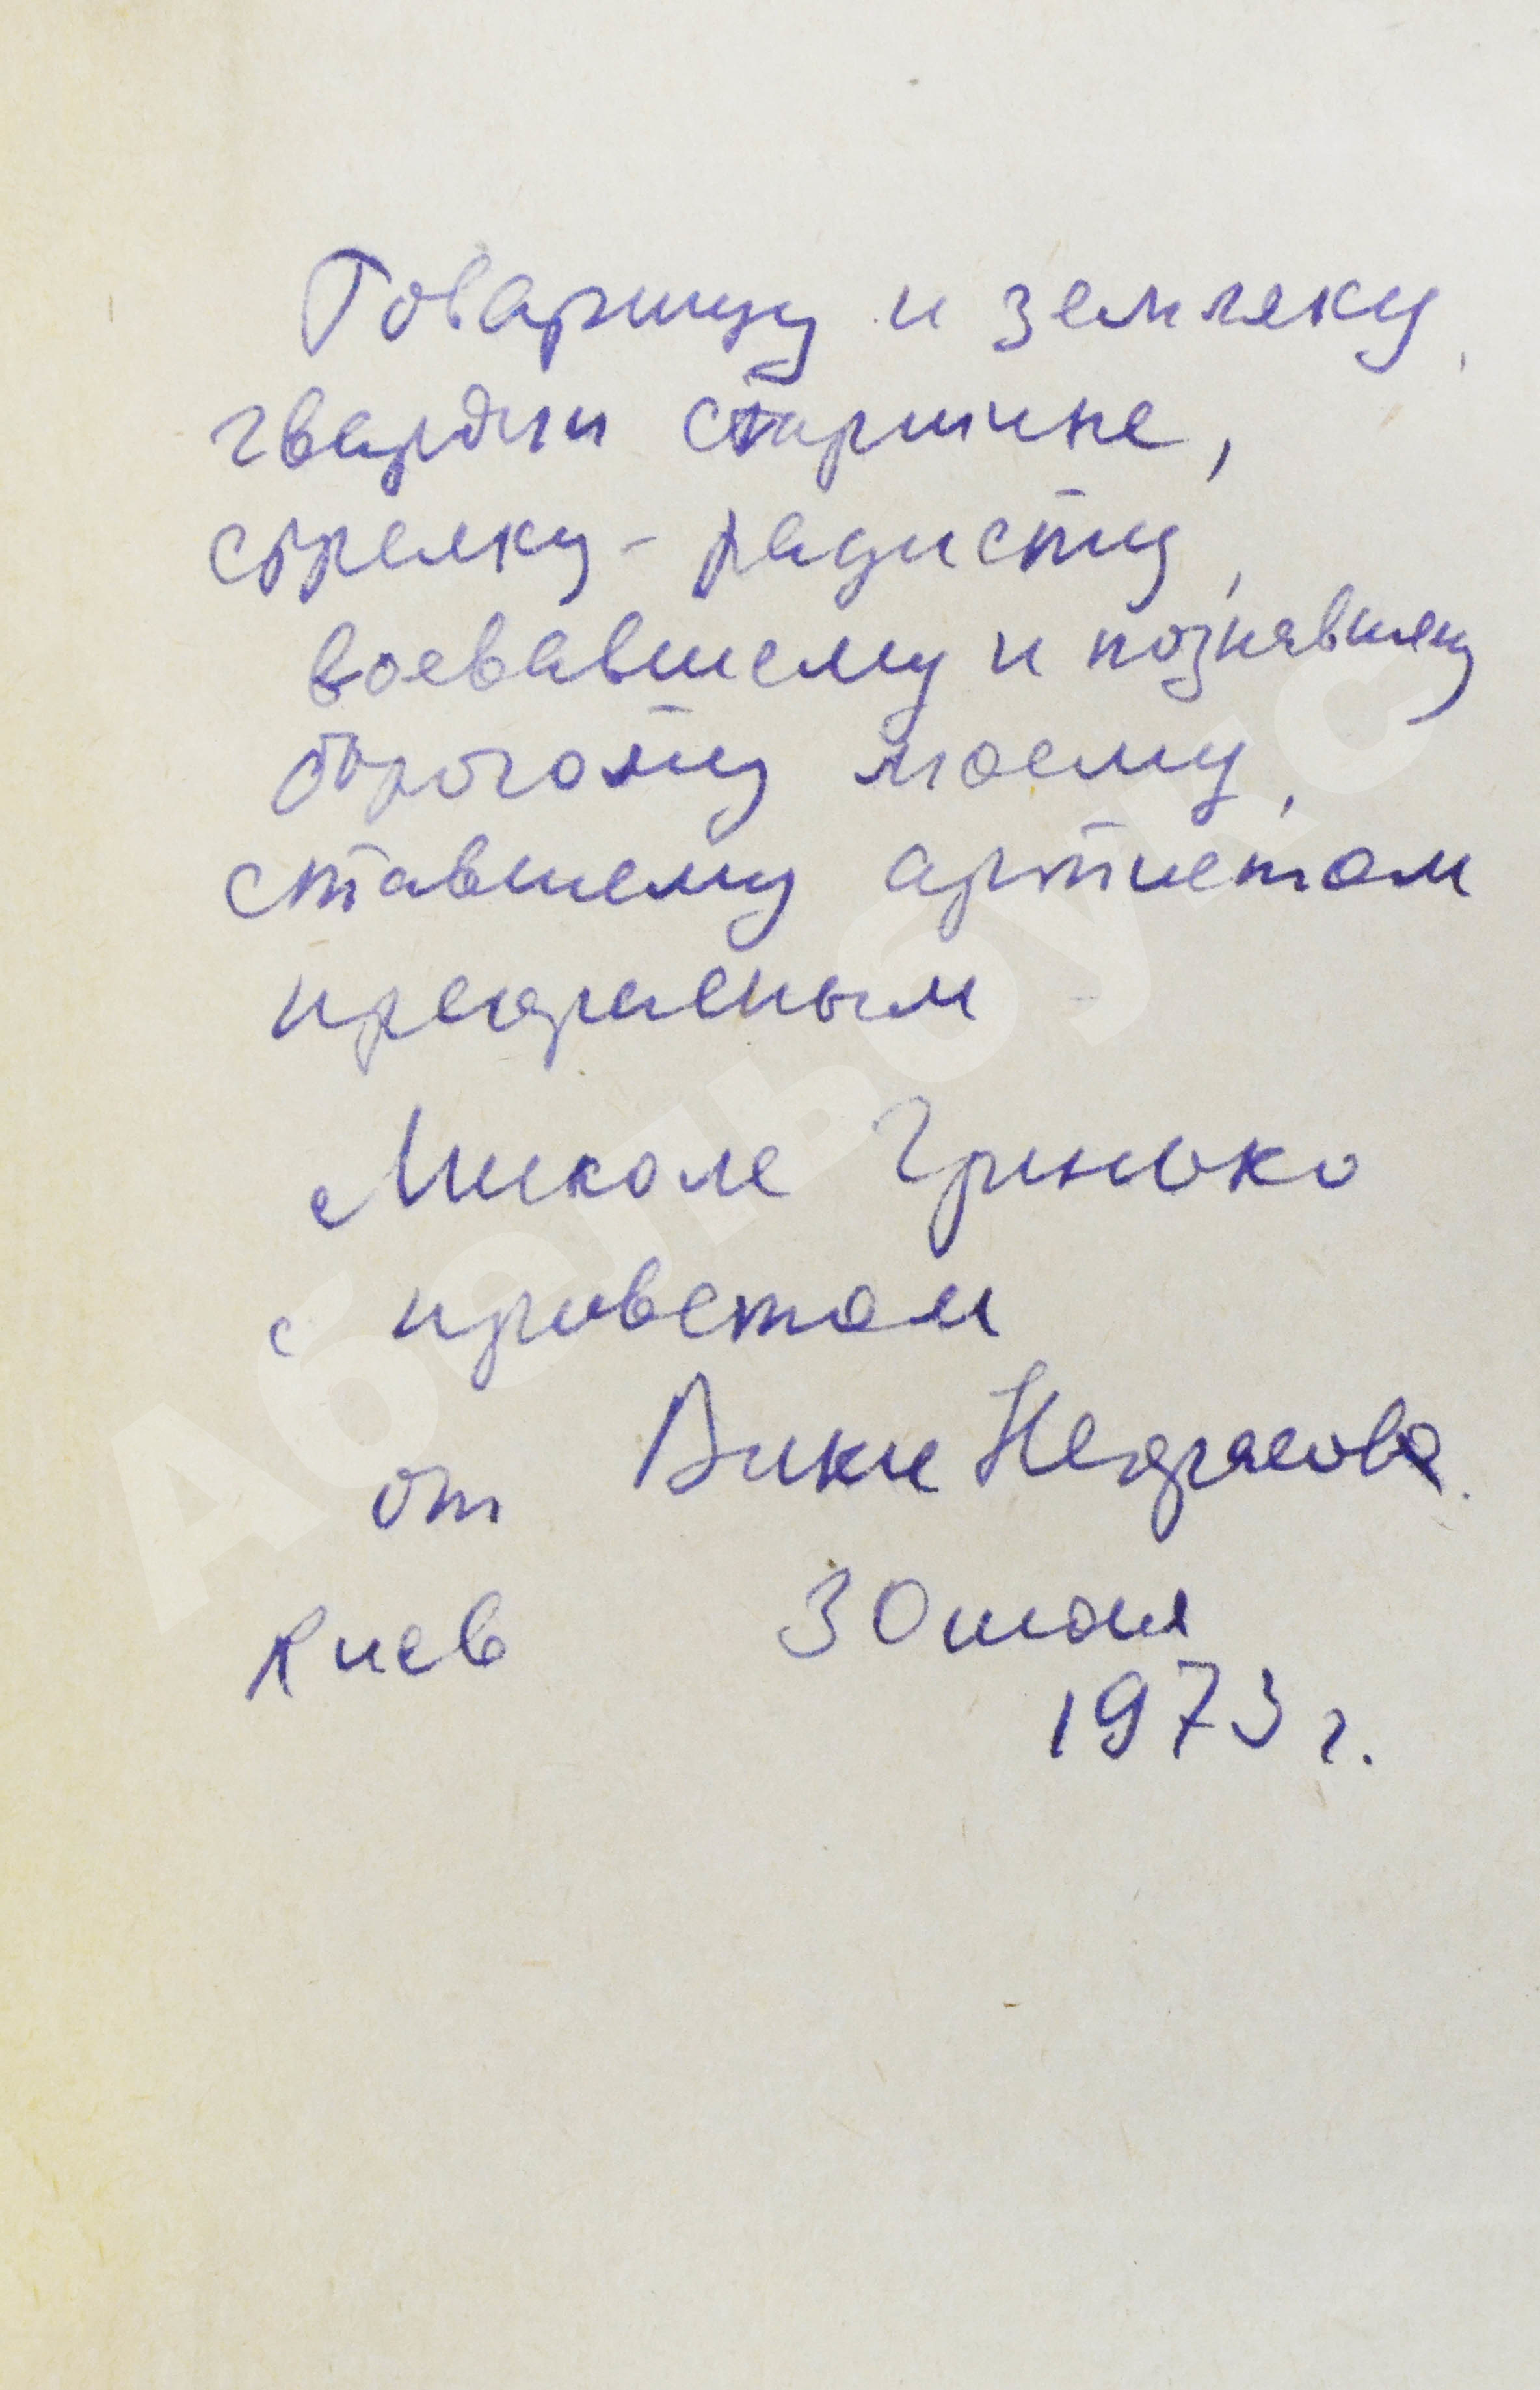 Товарищу и земляку,
гвардии старшине,
стрелку-радисту,
воевавшему и познавшему
дорогому моему,
ставшему артистом
прекрасным
Миколе Гринько
с приветом
от Вики Некрасова.
Киев 30 июня
1973 г.
Абельбукс